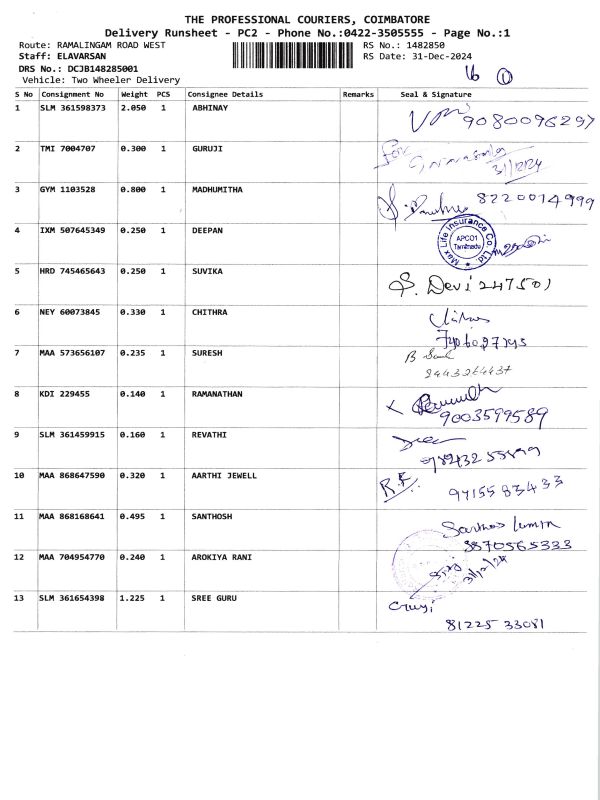 THE PROFESSIONAL COURIERS, COIMBATORE
Delivery Runsheet - PC2 - Phone No.:0422-3505555 - Page No.:1
Route: RAMALINGAM ROAD WEST RS No.: 1482850
Staff: ELAVARSAN RS Date: 31-Dec-2024
DRS No.: DCJB148285001
Vehicle: Two Wheeler Delivery 16 1
S No Consignment No Weight PCS Consignee Details Remarks Seal & Signature
1 SLM 361598373 2.050 1 ABHINAY
9080096297
2 TMI 7004707 0.300 1 GURUJI
for
31/12/24
3 GYM 1103528 0.800 1 MADHUMITHA
8220014999
4 IXM 507645349 0.250 1 DEEPAN
Max Life Insurance Co. Ltd.
APCO1
Tamilnadu
5 HRD 745465643 0.250 1 SUVIKA
S. Devi 247501
6 NEY 60073845 0.330 1 CHITHRA
7 MAA 573656107 0.235 1 SURESH
8 KDI 229455 0.140 1 RAMANATHAN
9003599589
9 SLM 361459915 0.160 1 REVATHI
10 MAA 868647590 0.320 1 AARTHI JEWELL
R.F.
9715583433
11 MAA 868168641 0.495 1 SANTHOSH
8870565333
12 MAA 704954770 0.240 1 AROKIYA RANI
31/12/24
13 SLM 361654398 1.225 1 SREE GURU
81225 33081